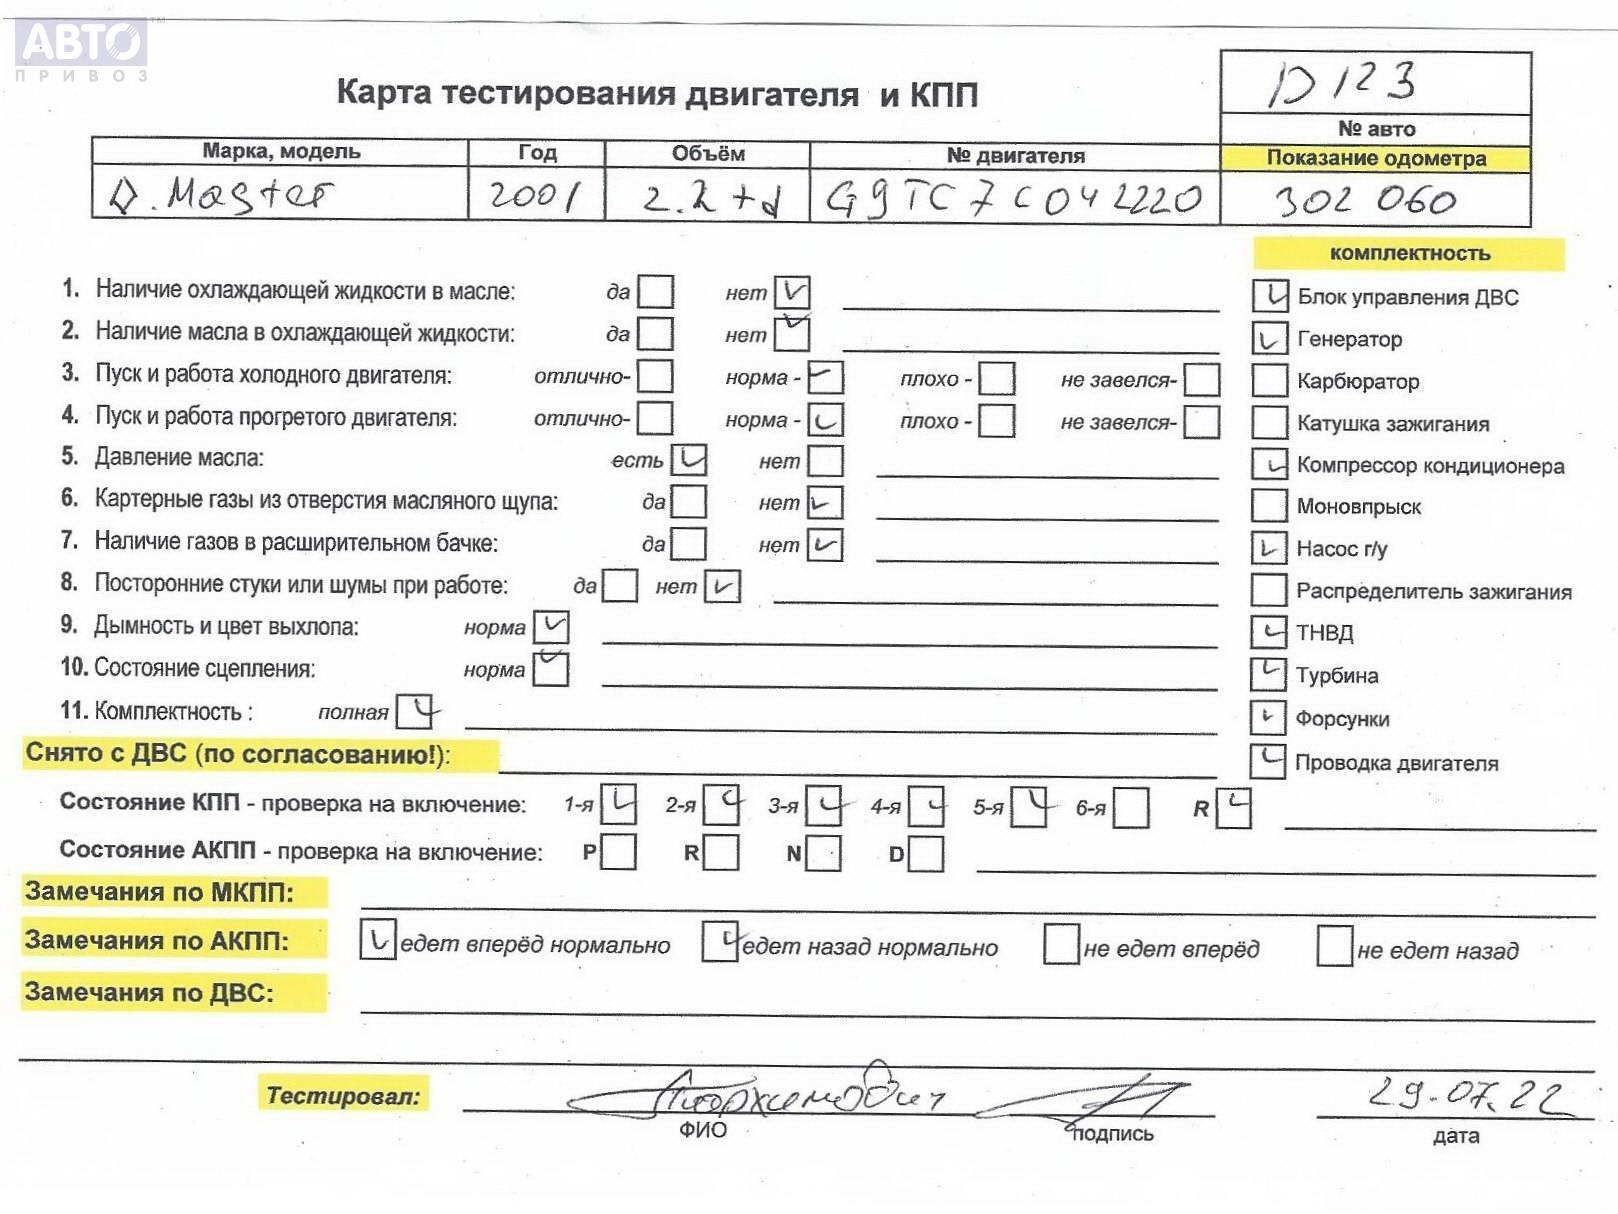 АВТО ™
ПРИВОЗ
D 123
Карта тестирования двигателя и КПП
№ авто
Марка, модель Год Объём № двигателя Показание одометра
D. Master 2001 2.2 td G9TC7C042220 302 060
комплектность
1. Наличие охлаждающей жидкости в масле: да нет Блок управления ДВС
2. Наличие масла в охлаждающей жидкости: да нет Генератор
3. Пуск и работа холодного двигателя: отлично- норма - плохо - не завелся- Карбюратор
4. Пуск и работа прогретого двигателя: отлично- норма - плохо - не завелся- Катушка зажигания
5. Давление масла: есть нет Компрессор кондиционера
6. Картерные газы из отверстия масляного щупа: да нет Моновпрыск
7. Наличие газов в расширительном бачке: да нет Насос г/у
8. Посторонние стуки или шумы при работе: да нет Распределитель зажигания
9. Дымность и цвет выхлопа: норма ТНВД
10. Состояние сцепления: норма Турбина
11. Комплектность : полная Форсунки
Снято с ДВС (по согласованию!): Проводка двигателя
Состояние КПП - проверка на включение: 1-я 2-я 3-я 4-я 5-я 6-я R
Состояние АКПП - проверка на включение: P R N D
Замечания по МКПП:
Замечания по АКПП: едет вперёд нормально едет назад нормально не едет вперёд не едет назад
Замечания по ДВС:
Тестировал: 29.07.22
ФИО подпись дата